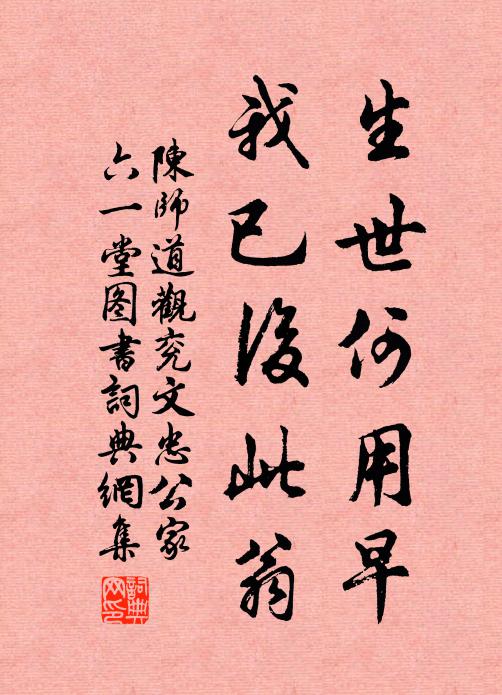 生世何用早
我已後此翁
陳師道觀兖文忠公家
六一堂图書詞典網集
詞典網印